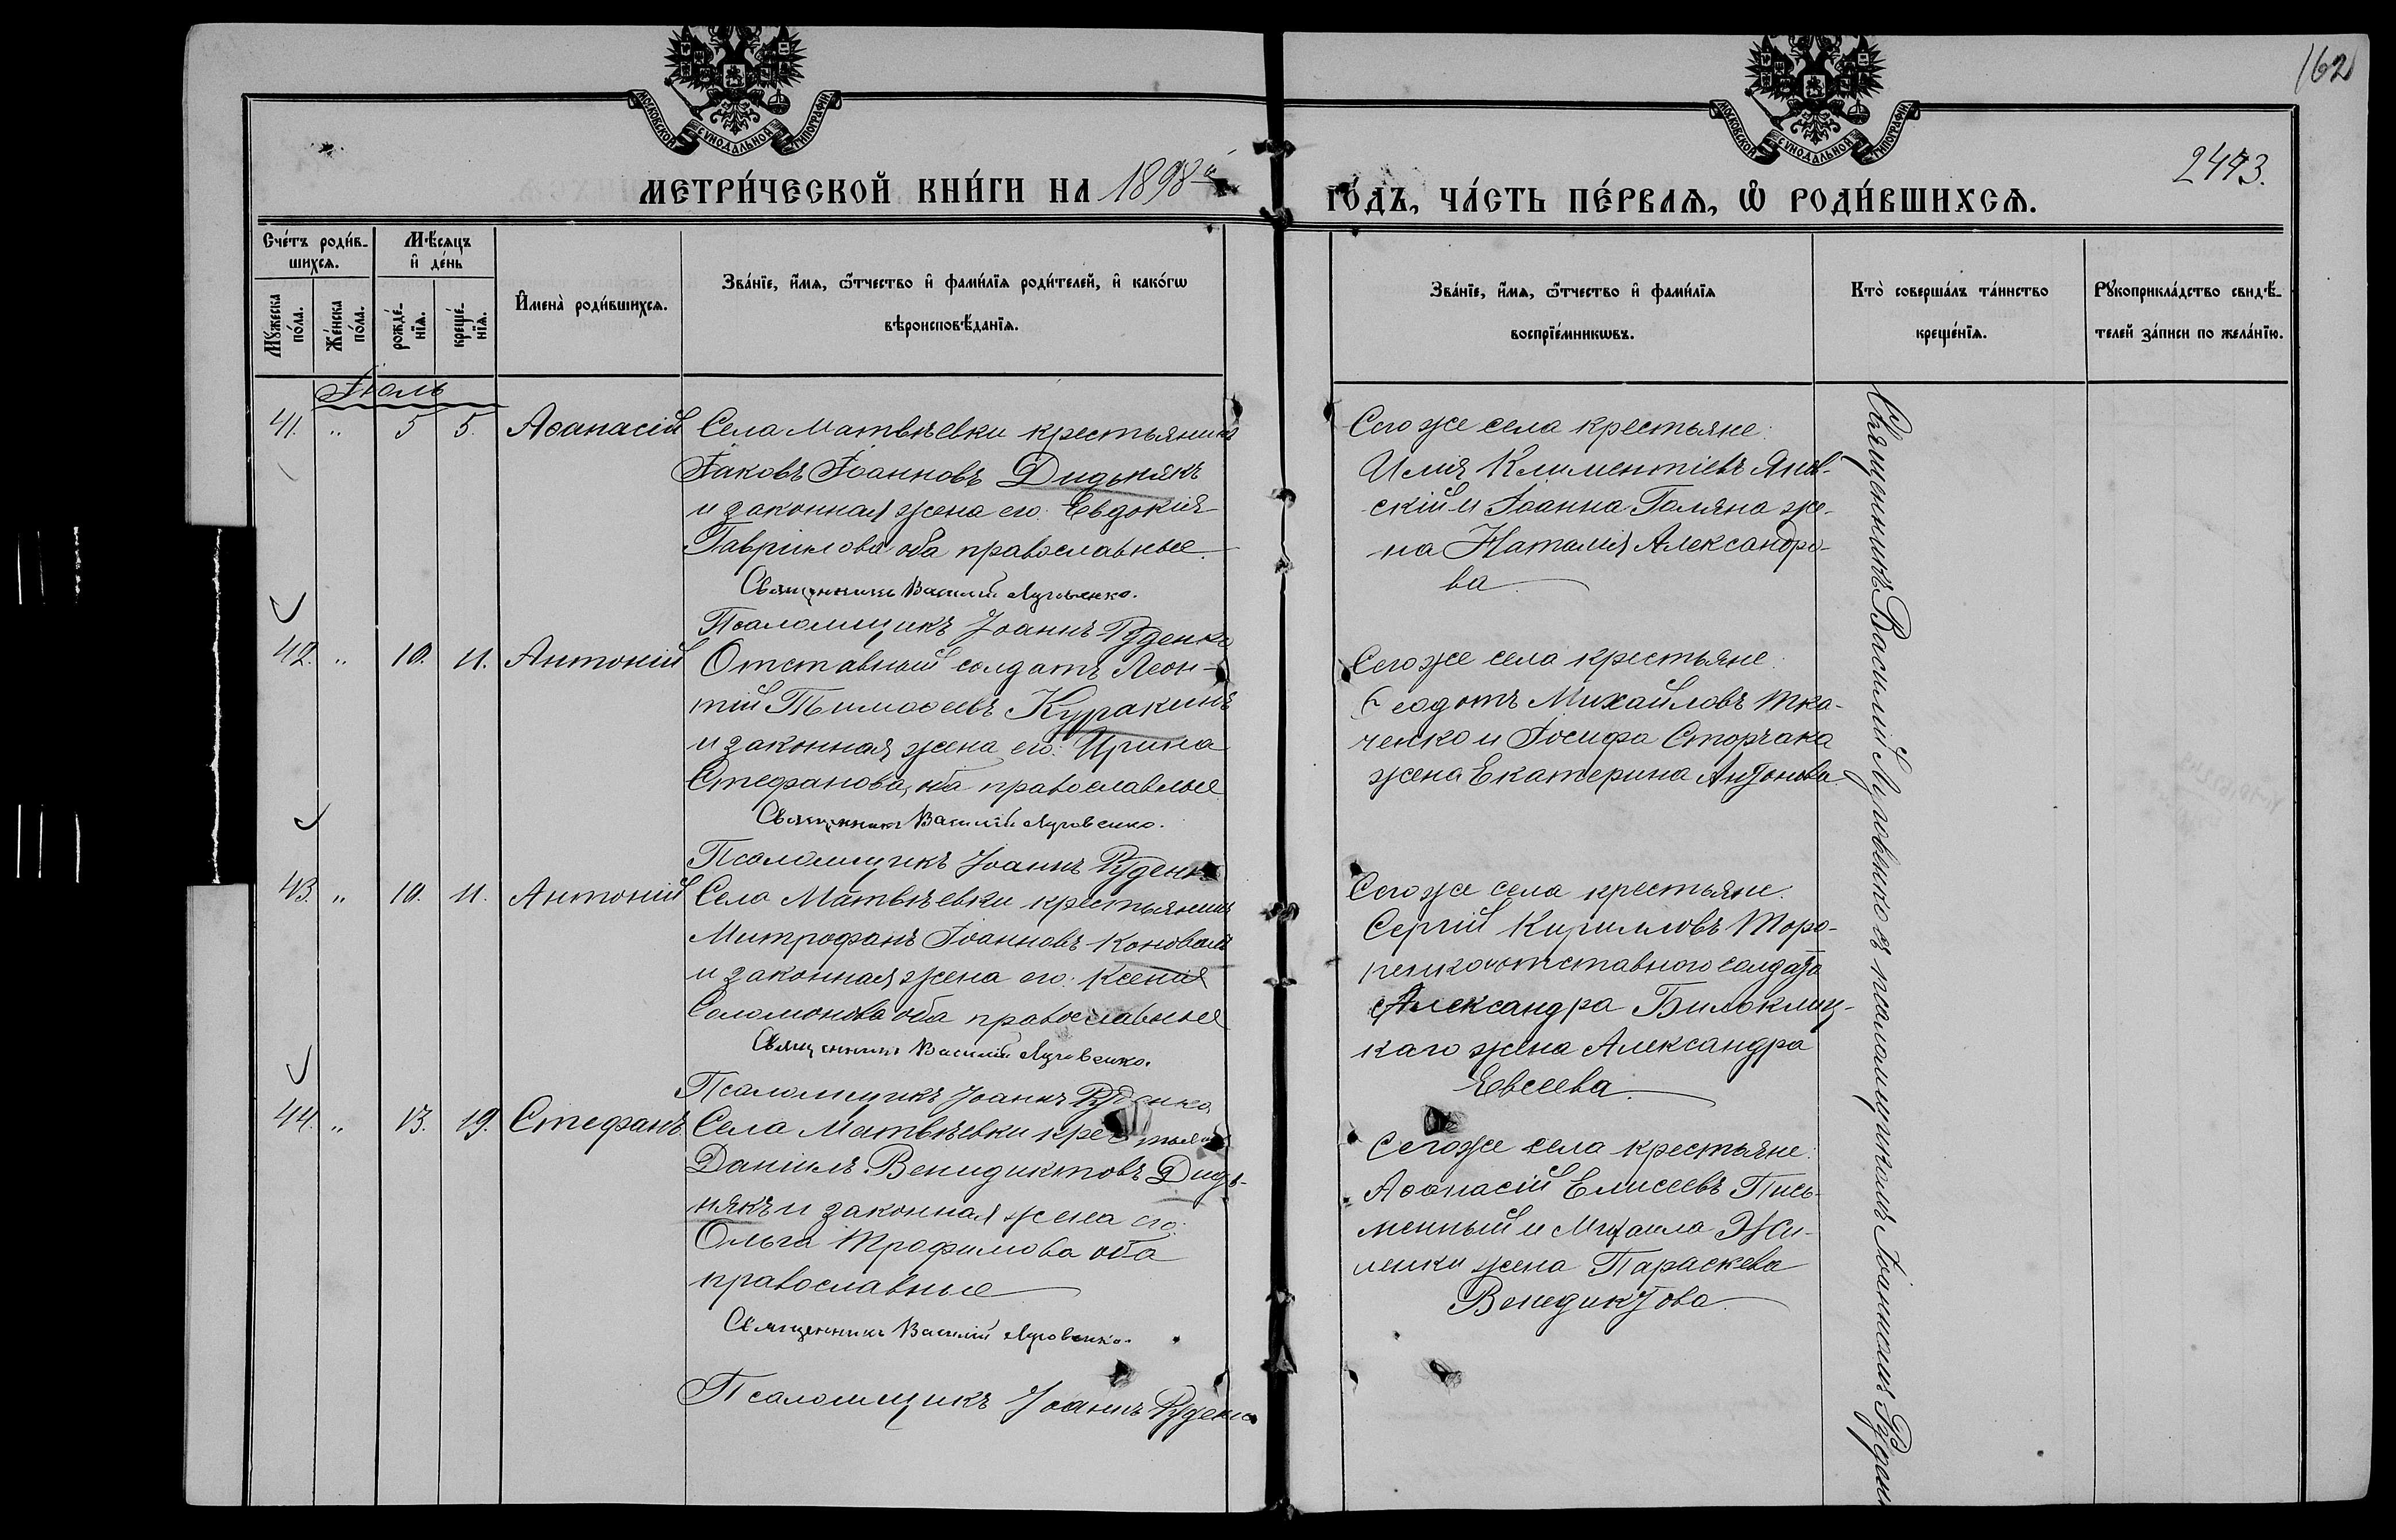 162
МОСКОВСКОЙ СѴНОДАЛЬНОЙ ТИПОГРАФІИ.
МОСКОВСКОЙ СѴНОДАЛЬНОЙ ТИПОГРАФІИ.
2473.
МЕТРИ́ЧЕСКОЙ КНИ́ГИ НА 1898й
ГО́ДЪ, ЧА́СТЬ ПЕ́РВАѦ, Ѡ҆ РОДИ́ВШИХСѦ.
Сче́тъ роди́в-
шихсѧ.
Мѣ́сѧцъ
и҆ де́нь
Мꙋ́жеска
по́ла.
Же́нска
по́ла.
рожде́-
нїѧ.
креще́-
нїѧ.
И҆мена̀ роди́вшихсѧ.
Зва́нїе, и҆́мѧ, ѻ҆́тчество и҆ фами́лїѧ роди́телей, и҆ како́гѡ
вѣроисповѣ́данїѧ.
Зва́нїе, и҆́мѧ, ѻ҆́тчество и҆ фами́лїѧ
воспрїе́мникѡвъ.
Кто̀ соверша́лъ та́инство
креще́нїѧ.
Рꙋкоприкла́дство свидѣ́-
телей за́писи по жела́нїю.
Іюль
41. " 5 5. Аѳанасій Села Матвѣевки крестьянинъ
Іаковъ Іоанновъ Дидьнякъ
и законная жена его: Евдокія
Гаврилова оба православные.
Священникъ Василій Луговенко.
Псаломщикъ Іоаннъ Руденко
Сего же села крестьяне:
Илія Климентіевъ Янов-
скій и Іоанна Голяна же-
на Наталія Александро-
ва
42. " 10. 11. Антоній Отставный солдатъ Леон-
тій Тимоѳеевъ Куракинъ
и законная жена его: Ирина
Стефанова, оба православные
Священникъ Василій Луговенко.
Псаломщикъ Іоаннъ Руденко
Сего же села крестьяне:
Ѳеодотъ Михайловъ Тка-
ченко и Іосифа Сторчака
жена Екатерина Антонова.
43. " 10. 11. Антоній Села Матвѣевки крестьянинъ
Митрофанъ Іоанновъ Коновалъ
и законная жена его: Ксенія
Соломонова оба православные
Священникъ Василій Луговенко.
Псаломщикъ Іоаннъ Руденко
Сего же села крестьяне:
Сергій Кирилловъ Торо-
пенко и отставного солдата
Александра Билоклиц-
каго жена Александра
Евсеева.
44. " 13. 19. Стефанъ Села Матвѣевки крестьянинъ
Даніилъ Венидиктовъ Дидь-
някъ и законная жена его:
Ольга Трофимова оба
православные
Священникъ Василій Луговенко.
Псаломщикъ Іоаннъ Руденко
Сего же села крестьяне:
Аѳанасій Елисеевъ Пись-
менный и Михаила Жи-
ленки жена Параскева
Венедиктова.
Священникъ Василій Луговенко съ псаломщикомъ Іоанномъ Руденк